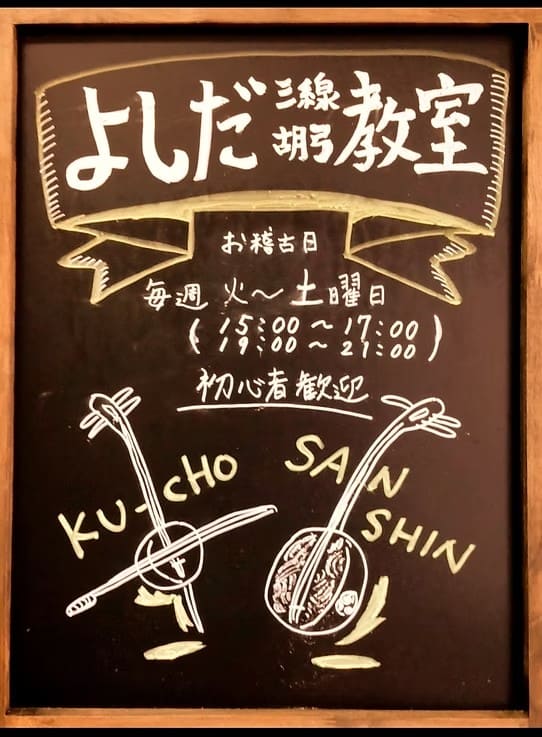 よしだ 三線 胡弓 教室
お稽古日
毎週 火～土曜日
(15:00～17:00
19:00～21:00)
初心者歓迎
KU-CHO
SAN
SHIN